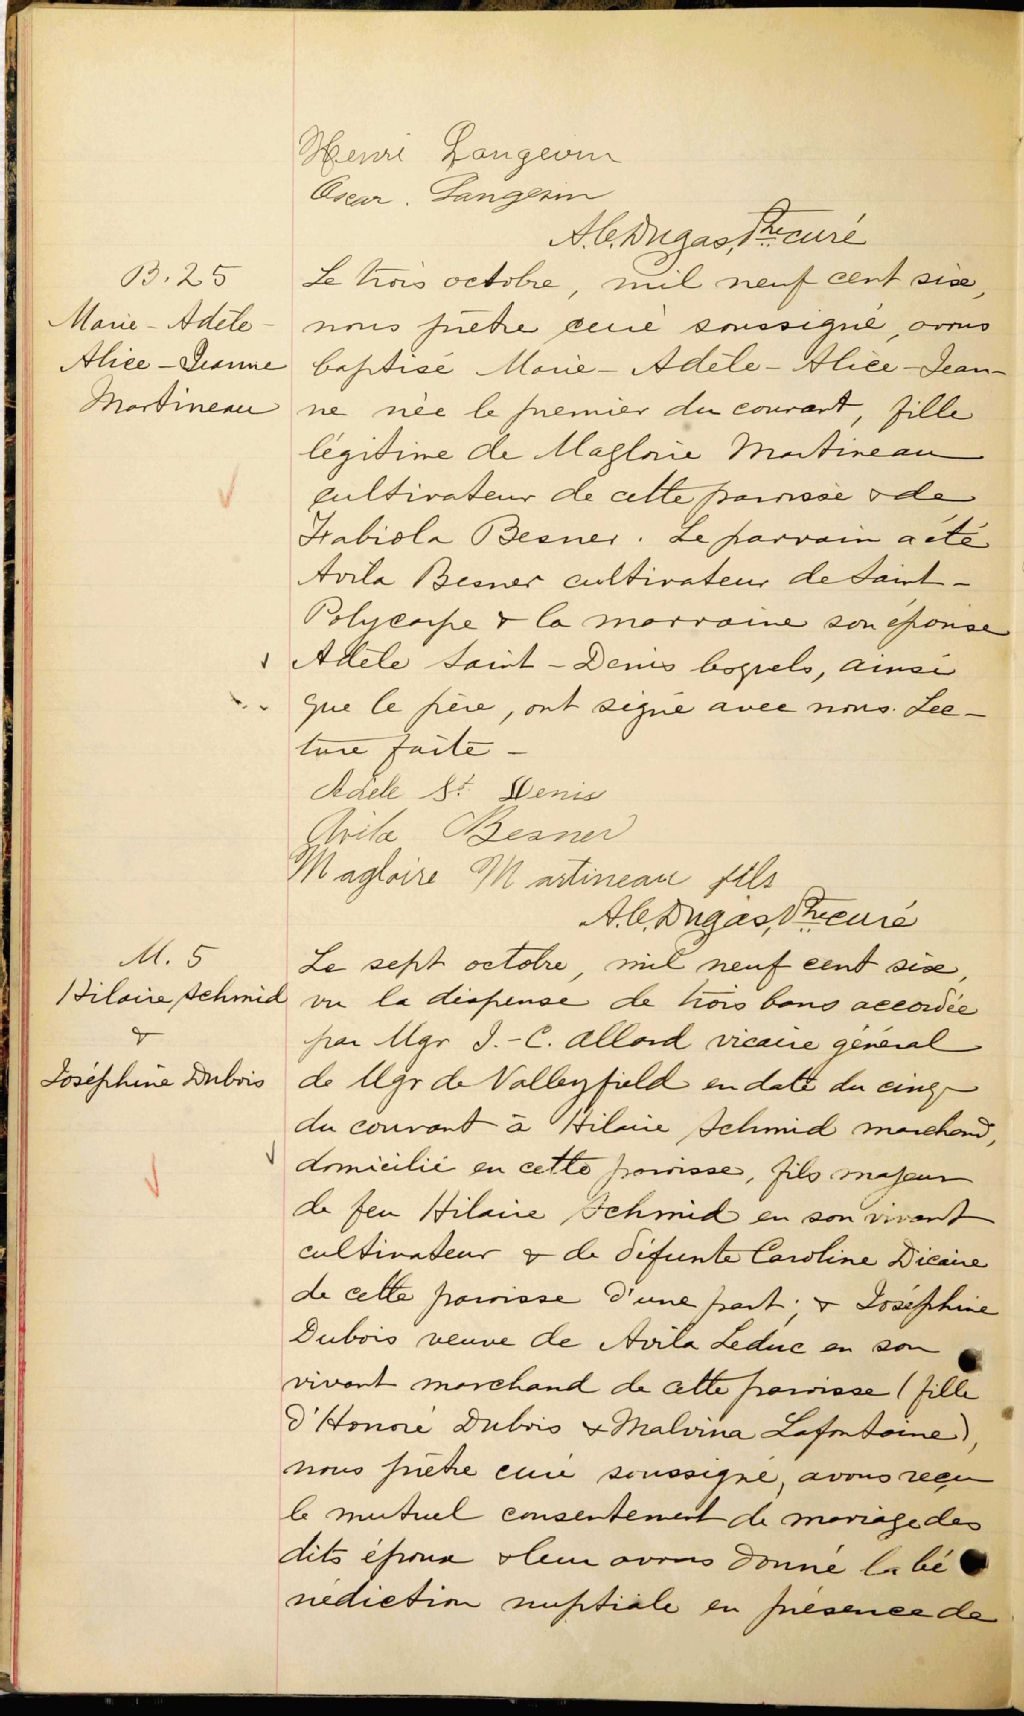 Henri Langevin
Oscar. Langevin
A.C. Dugas, Ptre curé
B. 25
Marie-Adèle-
Alice-Jeanne
Martineau
Le trois octobre, mil neuf cent six,
nous prêtre curé soussigné, avons
baptisé Marie-Adèle-Alice-Jean-
ne née le premier du courant, fille
légitime de Magloire Martineau
cultivateur de cette paroisse & de
Fabiola Besner. Le parrain a été
Avila Besner cultivateur de Saint-
Polycarpe & la marraine son épouse
Adèle Saint-Denis lesquels, ainsi
que le père, ont signé avec nous. Lec-
ture faite -
Adèle St. Denis
Avila Besner
Magloire Martineau fils
A.C. Dugas, Ptre curé
M. 5
Hilaire Schmid
&
Joséphine Dubois
Le sept octobre, mil neuf cent six,
vu la dispense de trois bans accordée
par Mgr J.-C. Allard vicaire général
de Mgr de Valleyfield en date du cinq
du courant à Hilaire Schmid marchand,
domicilié en cette paroisse, fils majeur
de feu Hilaire Schmid en son vivant
cultivateur & de défunte Caroline Dicaire
de cette paroisse d'une part; & Joséphine
Dubois veuve de Avila Leduc en son
vivant marchand de cette paroisse (fille
d'Honoré Dubois & Malvina Lafontaine),
nous prêtre curé soussigné, avons reçu
le mutuel consentement de mariage des
dits époux & leur avons donné la bé
nédiction nuptiale en présence de